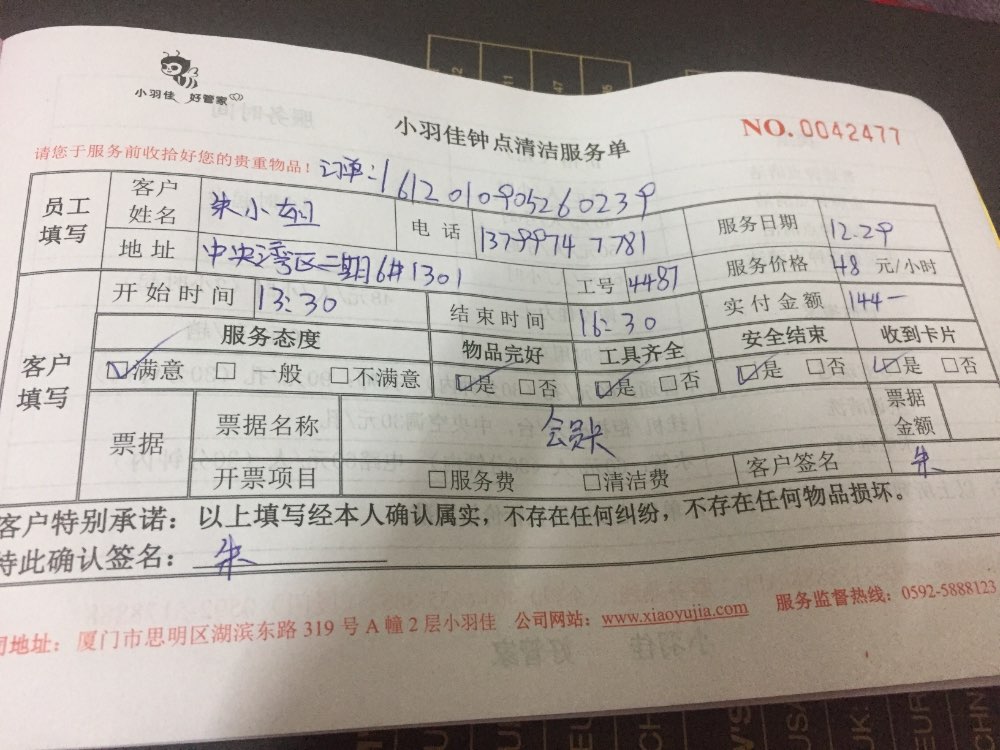 小羽佳 好管家
小羽佳钟点清洁服务单
NO. 0042477
请您于服务前收拾好您的贵重物品！ 订单：161201090526 0239
员工填写 客户姓名 朱小 电话 13799747781 服务日期 12.29
地址 中央湾区二期6#1301 工号 4487 服务价格 48 元/小时
客户填写 开始时间 13:30 结束时间 16:30 实付金额 144一
服务态度 物品完好 工具齐全 安全结束 收到卡片
☑满意 □一般 □不满意 ☑是 □否 ☑是 □否 ☑是 □否 ☑是 □否
票据 票据名称 会员卡 票据金额
开票项目 □服务费 □清洁费 客户签名 朱
客户特别承诺：以上填写经本人确认属实，不存在任何纠纷，不存在任何物品损坏。
特此确认签名：朱
司地址：厦门市思明区湖滨东路 319 号 A 幢 2 层小羽佳 公司网站：www.xiaoyujia.com 服务监督热线：0592-5888123